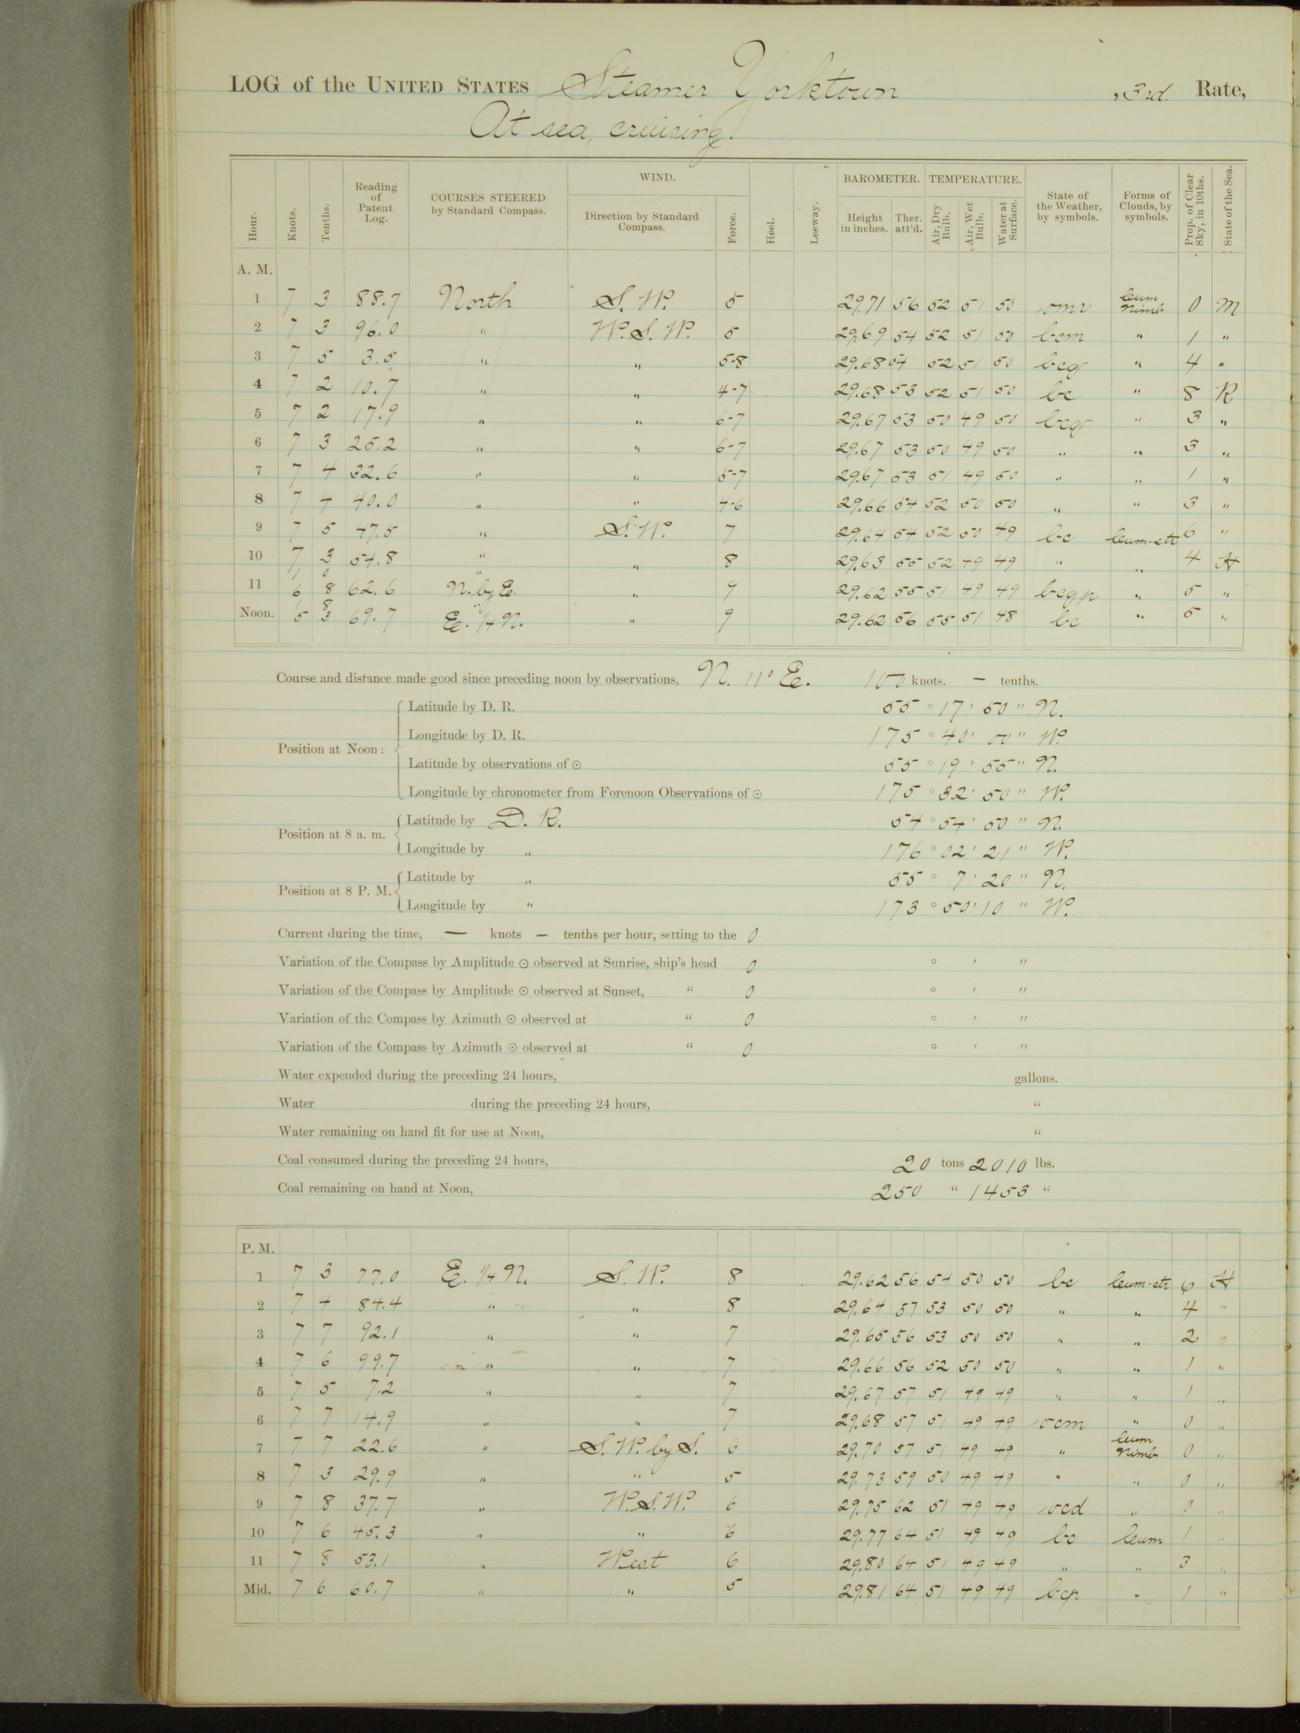 LOG of the UNITED STATES Steamer Yorktown , 3rd. Rate,
At sea, cruising.
Hour. Knots. Tenths. Reading of Patent Log. COURSES STEERED by Standard Compass. WIND. Direction by Standard Compass. Force. Heel. Leeway. BAROMETER. Height in inches. Ther. att'd. TEMPERATURE. Air, Dry Bulb. Air, Wet Bulb. Water at Surface. State of the Weather, by symbols. Forms of Clouds, by symbols. Prop. of Clear Sky, in 10ths. State of the Sea.
A. M.
1 7 3 88.7 North S. W. 5 29.71 56 52 51 50 omr Cum Nimb 0 M
2 7 3 96.0 " W. S. W. 5 29.69 54 52 51 50 bcm " 1 "
3 7 5 3.5 " " 5-8 29.68 54 52 51 50 bcq " 4 "
4 7 2 10.7 " " 4-7 29.68 53 52 51 50 bc " 8 R
5 7 2 17.9 " " 6-7 29.67 53 50 49 50 bcq " 3 "
6 7 3 25.2 " " 6-7 29.67 53 50 49 50 " " 3 "
7 7 4 32.6 " " 5-7 29.67 53 51 49 50 " " 1 "
8 7 4 40.0 " " 4-6 29.66 54 52 50 50 " " 3 "
9 7 5 47.5 " S. W. 7 29.64 54 52 50 49 bc Cum-str 6 "
10 7 3 54.8 " " 8 29.63 55 52 49 49 " " 4 H
1 0 "
11 6 8 62.6 N. by E. " 9 29.62 55 51 49 49 bcqp " 5 "
1 8 "
Noon. 5 3 69.7 E. 1/4 N. " 9 29.62 56 55 51 48 bc " 5 "
Course and distance made good since preceding noon by observations, N. 11° E. 100 knots. — tenths.
Latitude by D. R. 55 ° 17 ' 50 " N.
Longitude by D. R. 175 ° 40 ' 00 " W.
Position at Noon:
Latitude by observations of ☉ 55 ° 19 ' 55 " N.
Longitude by chronometer from Forenoon Observations of ☉ 175 ° 32 ' 50 " W.
Latitude by D. R. 54 ° 54 ' 50 " N.
Position at 8 a. m.
Longitude by " 176 ° 02 ' 21 " W.
Latitude by " 55 ° 7 ' 20 " N.
Position at 8 P. M.
Longitude by " 173 ° 50 ' 10 " W.
Current during the time, — knots — tenths per hour, setting to the 0
Variation of the Compass by Amplitude ☉ observed at Sunrise, ship's head 0 ° ' "
Variation of the Compass by Amplitude ☉ observed at Sunset, " 0 ° ' "
Variation of the Compass by Azimuth ☉ observed at " 0 ° ' "
Variation of the Compass by Azimuth ☉ observed at " 0 ° ' "
Water expended during the preceding 24 hours, gallons.
Water during the preceding 24 hours, "
Water remaining on hand fit for use at Noon, "
Coal consumed during the preceding 24 hours, 20 tons 2010 lbs.
Coal remaining on hand at Noon, 250 " 1453 "
P. M.
1 7 3 77.0 E. 1/4 N. S. W. 8 29.62 56 54 50 50 bc Cum-str 6 H
2 7 4 84.4 " " 8 29.64 57 53 50 50 " " 4 "
3 7 7 92.1 " " 7 29.65 56 53 50 50 " " 2 "
4 7 6 99.7 " " 7 29.66 56 52 50 50 " " 1 "
5 7 5 7.2 " " 7 29.67 57 51 49 49 " " 1 "
6 7 7 14.9 " " 7 29.68 57 51 49 49 ocm " 0 "
7 7 7 22.6 " S. W. by S. 6 29.70 57 51 49 49 " Cum Nimb 0 "
8 7 3 29.9 " " 5 29.73 59 50 49 49 " " 0 "
9 7 8 37.7 " W. S. W. 6 29.75 62 51 49 49 ocd " 0 "
10 7 6 45.3 " " 6 29.77 64 51 49 49 bc Cum 1 "
11 7 8 53.1 " West 6 29.80 64 51 49 49 " " 3 "
Mid. 7 6 60.7 " " 5 29.81 64 51 49 49 bcp " 1 "